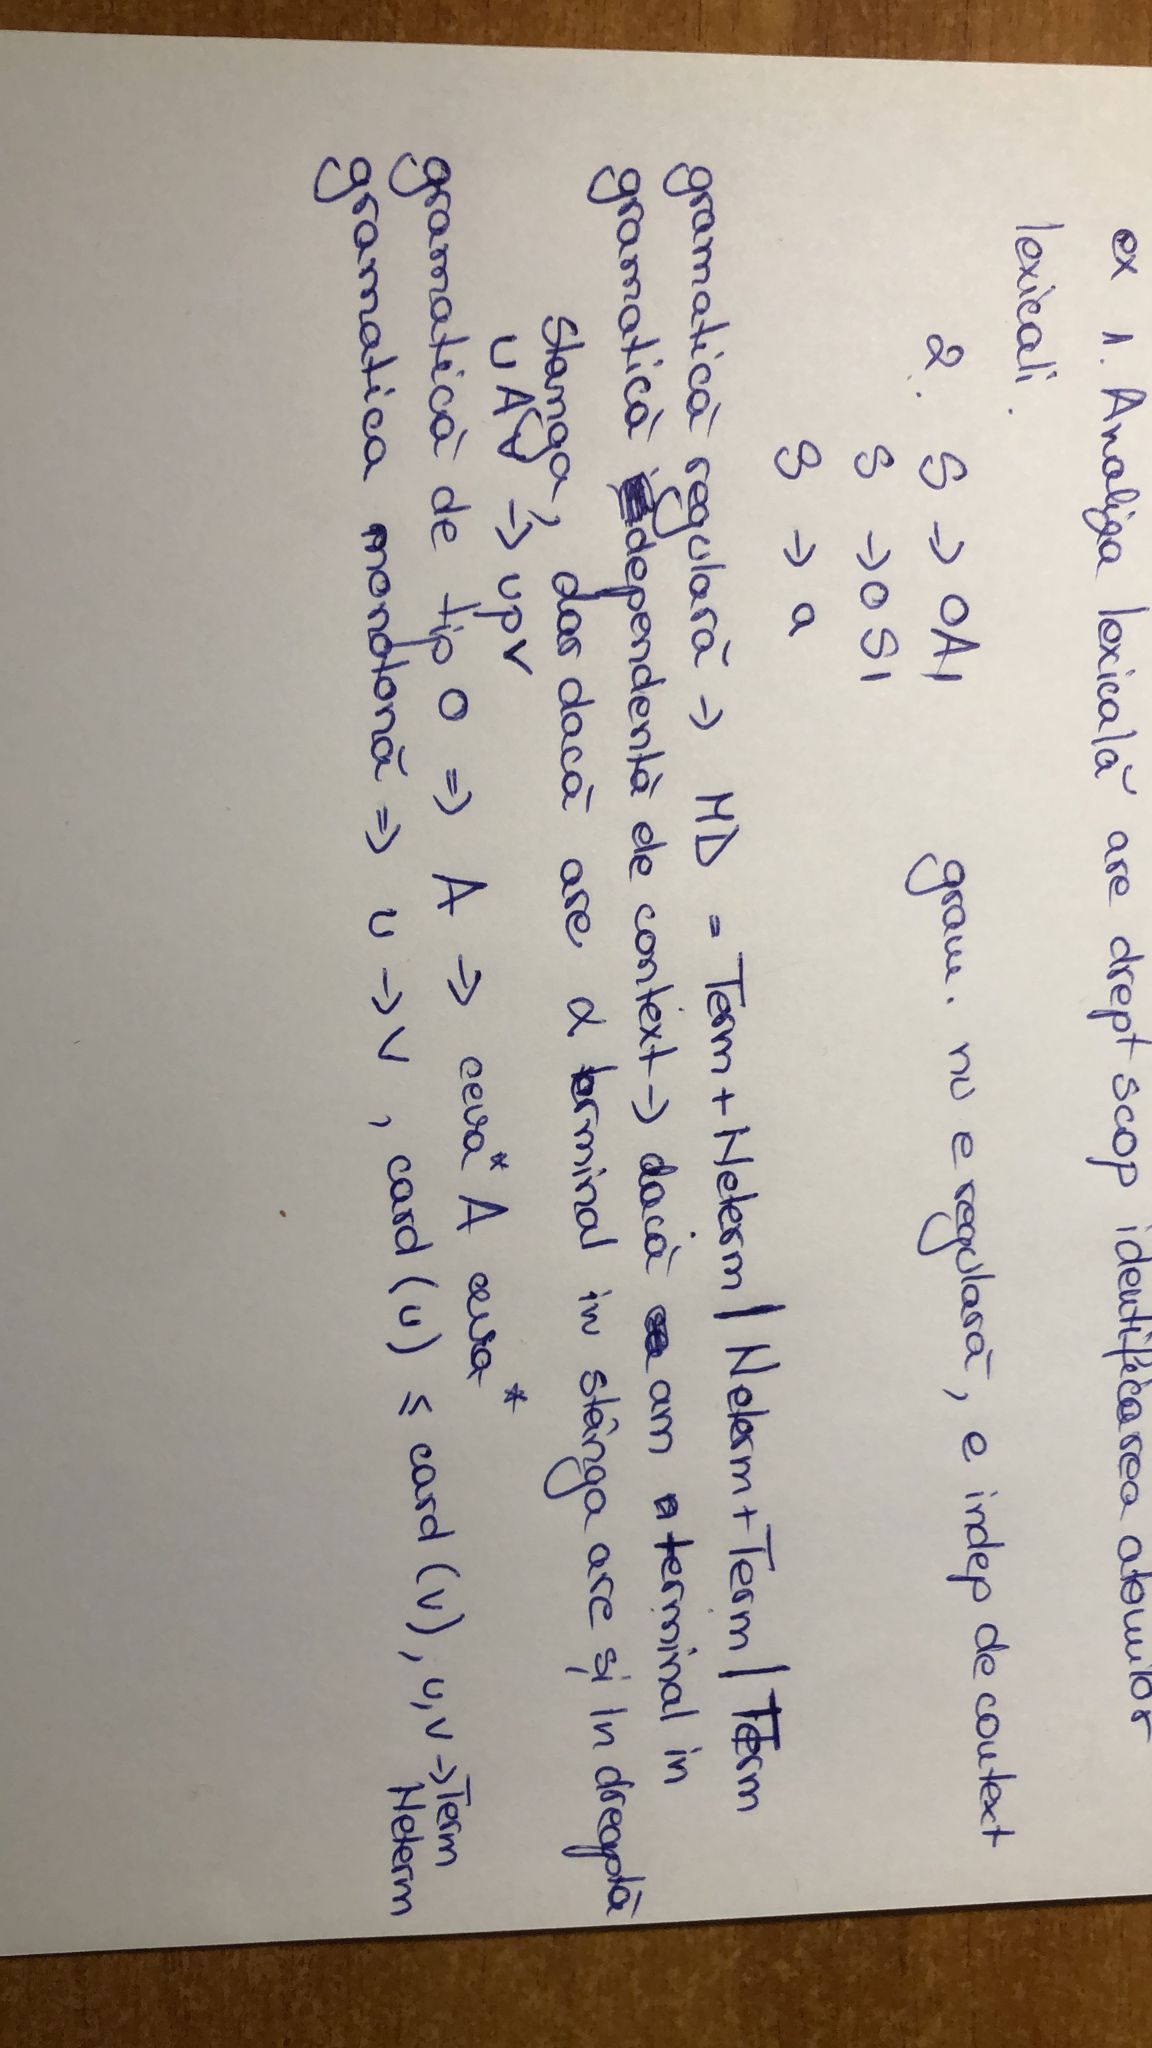 ex 1. Analiza lexicală are drept scop identificarea atomilor
lexicali.
2. S → 0A1 gram. nu e regulară, e indep de context
S → 0S1
S → a
gramatică regulară → MD = Term + Neterm | Neterm + Term | Term
gramatică dependentă de context → dacă am n terminal in
stanga, dar dacă are α terminal in stânga are și în dreapta
uAv → upv
gramatică de tip 0 => A → ceva* A ceva*
gramatica monotonă => u → v, card (u) ≤ card (v), u,v → Term
Neterm